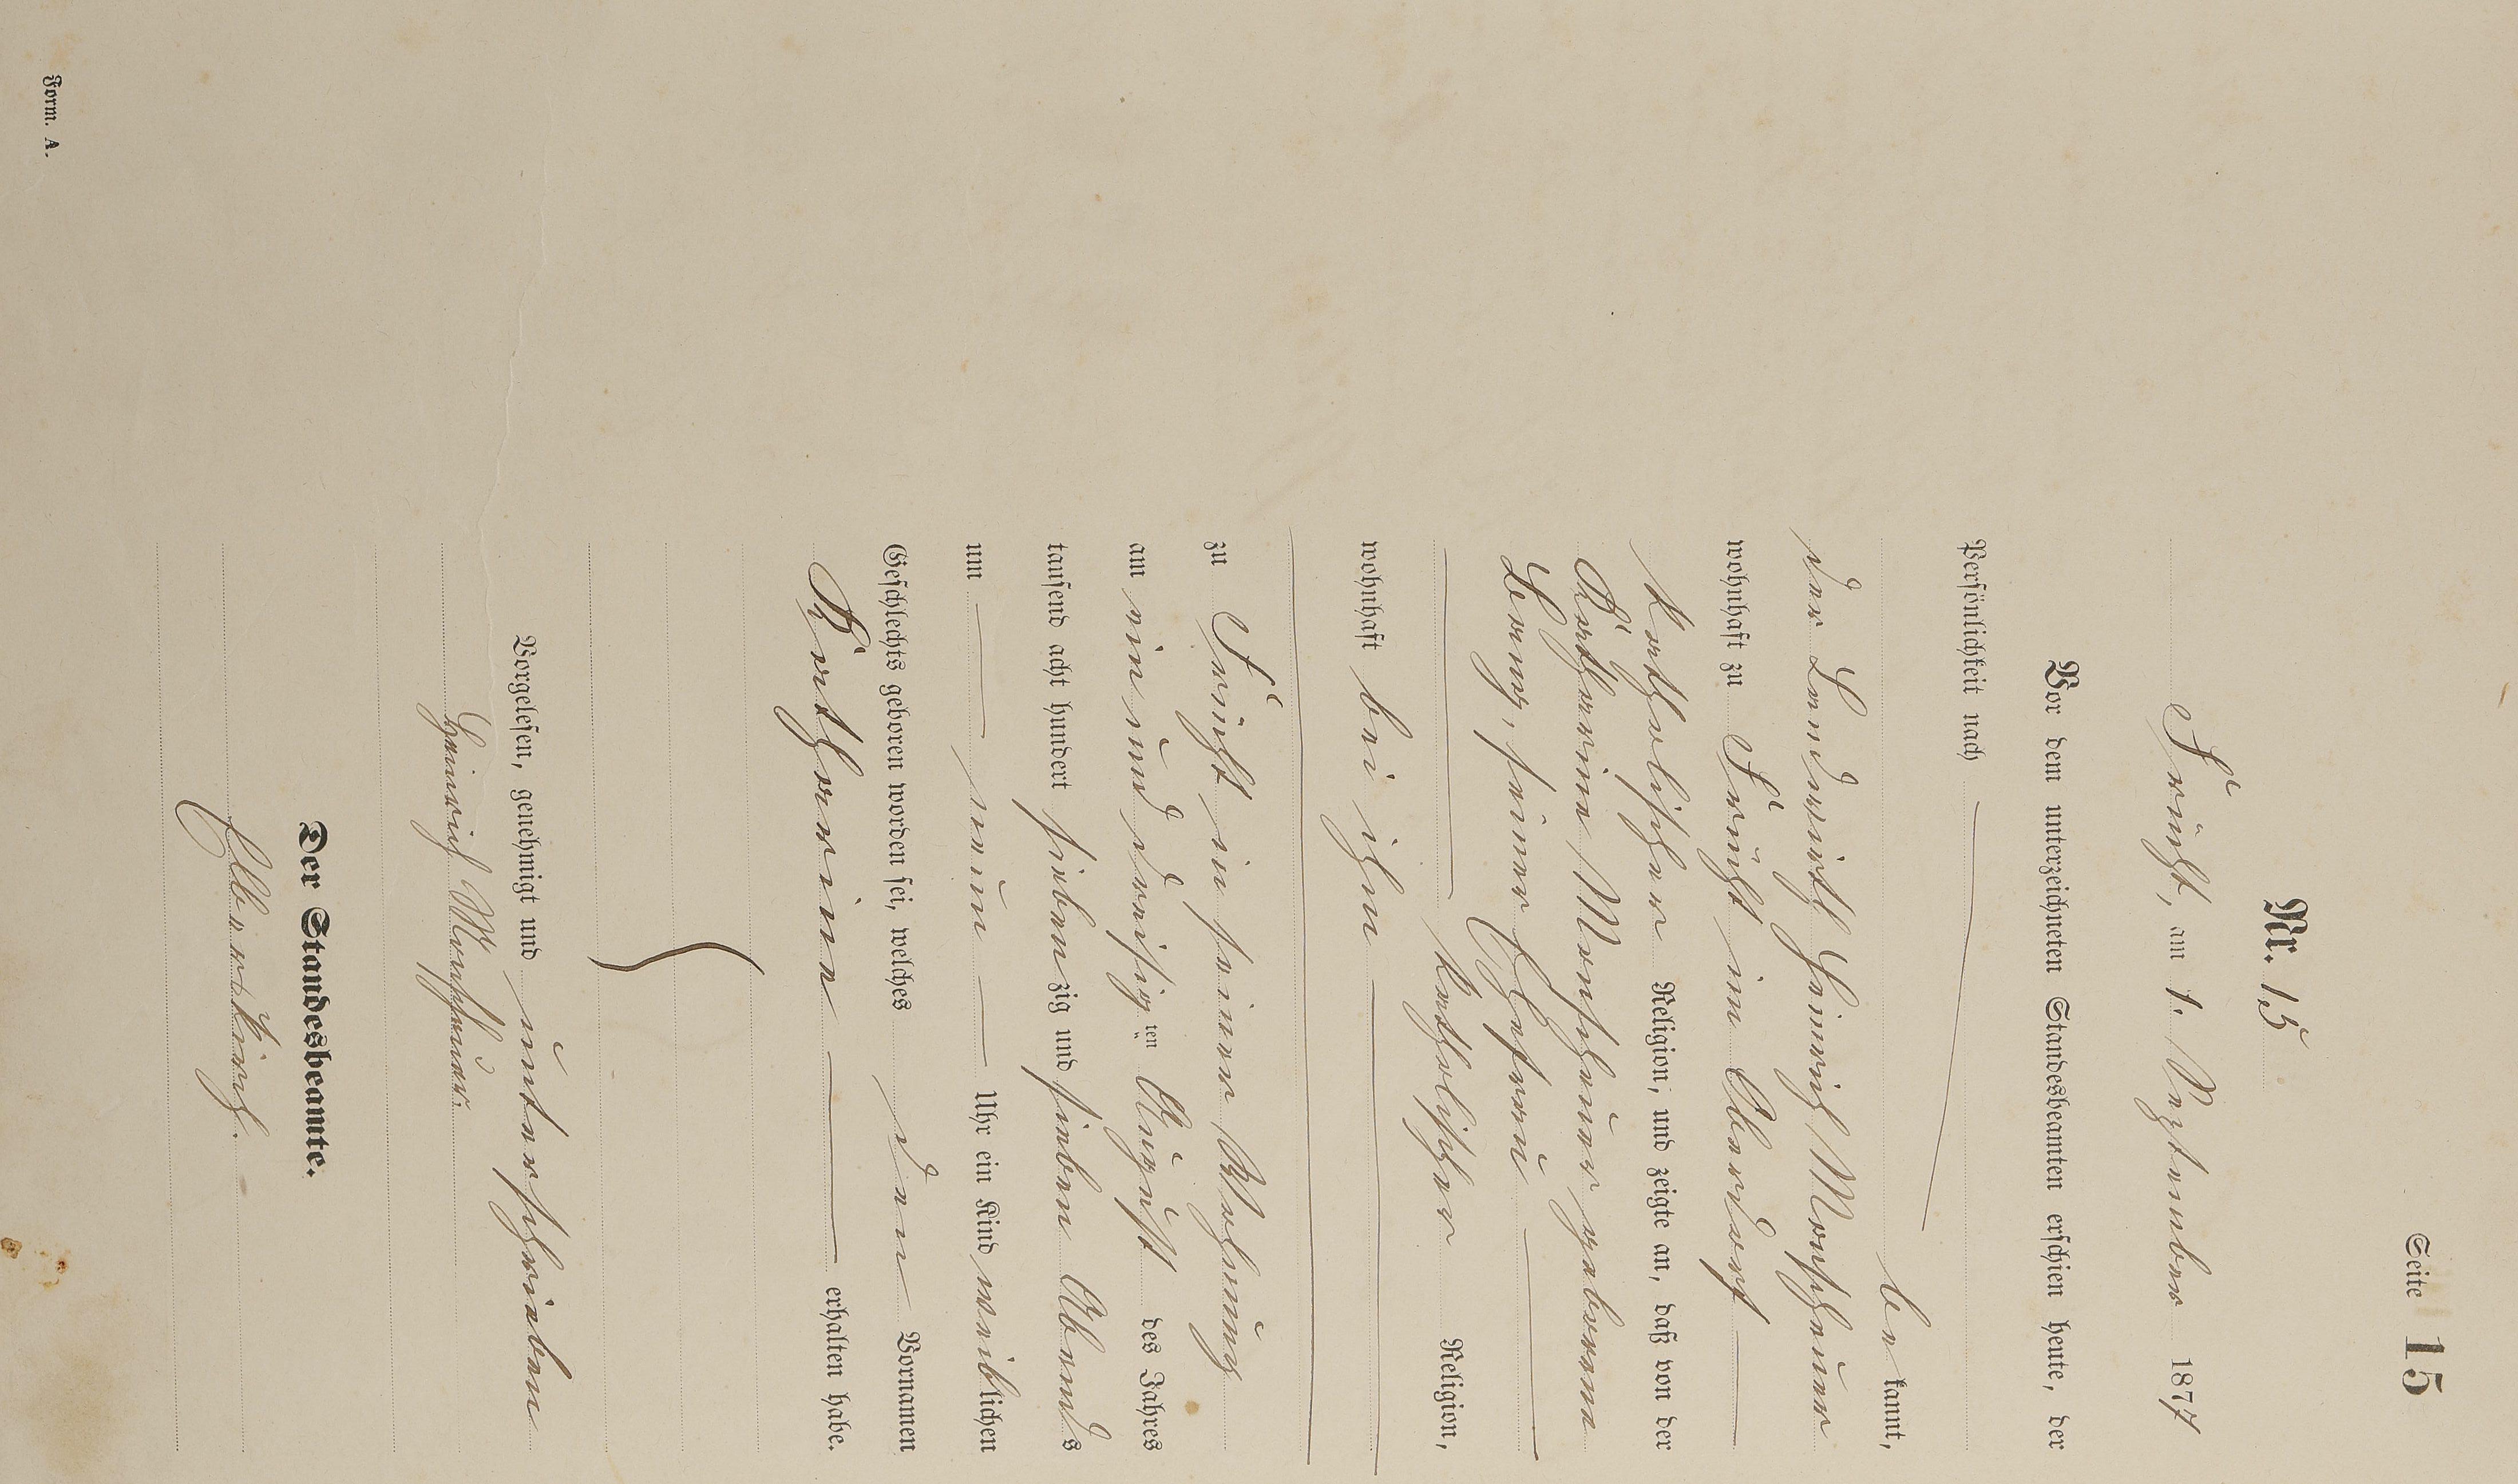 Seite 15
Nr. 15
Frücht, am 1. September 1877
Vor dem unterzeichneten Standesbeamten erschien heute, der
Persönlichkeit nach
bekannt,
der Landwirth Heinrich
wohnhaft zu Frücht im Oberdorf
katholischer Religion, und zeigte an, daß von der
Katharina geborenen
Lang, seiner Ehefrau
katholischer Religion,
wohnhaft bei ihm
zu Frücht in seiner Wohnung
am ein und dreißigten August des Jahres
tausend acht hundert siebenzig und sieben Abends
um neun Uhr ein Kind weiblichen
Geschlechts geboren worden sei, welches den Vornamen
Katharina erhalten habe.
Vorgelesen, genehmigt und unterschrieben
Heinrich
Der Standesbeamte.
Form. A.